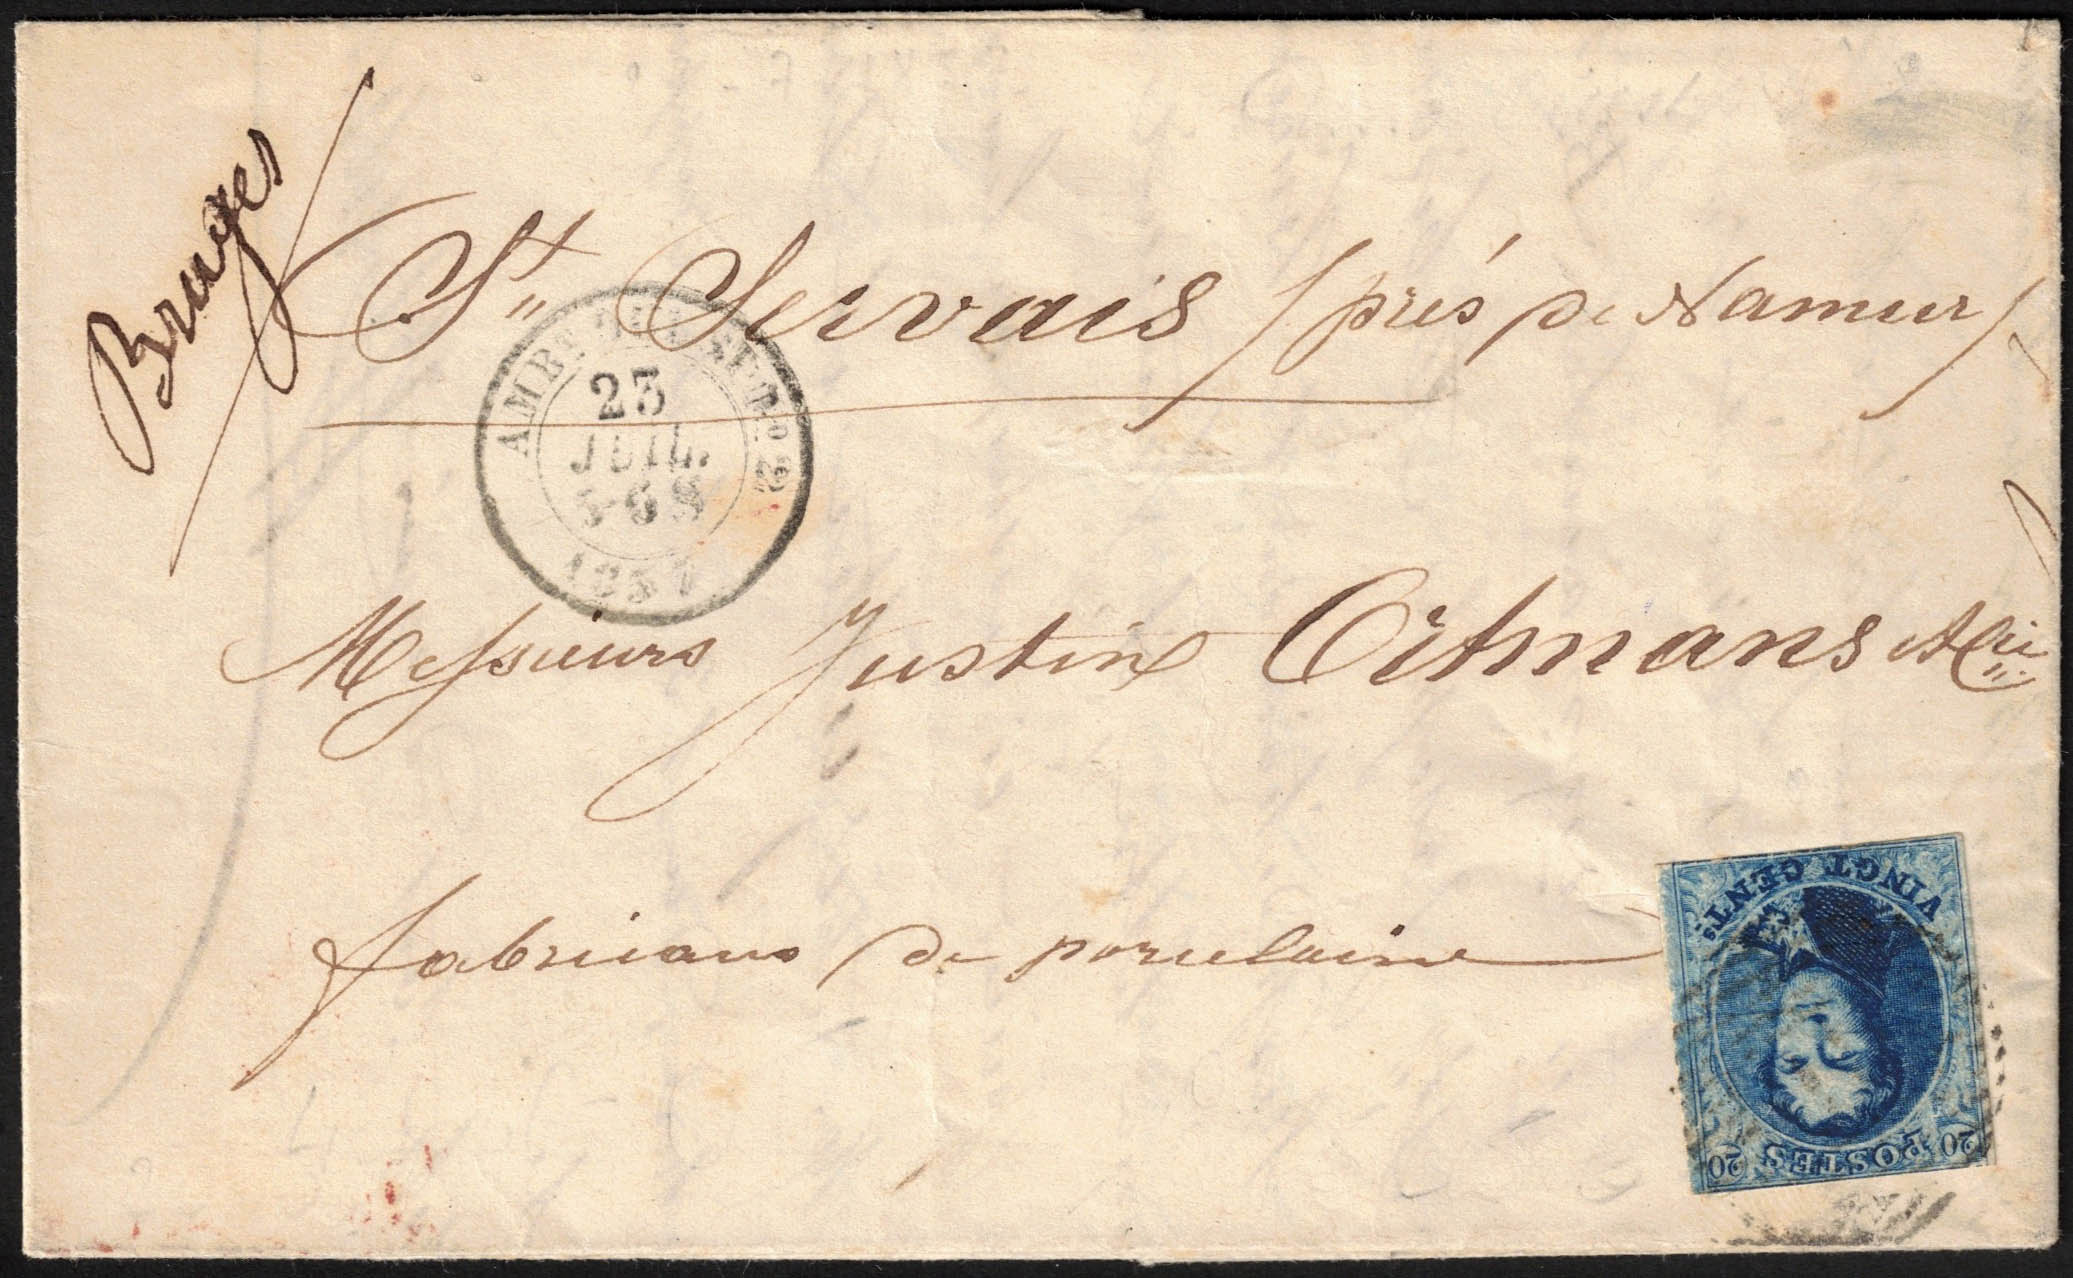 Bruges
St Servais (près de Namur)
AMBT 
23
JUIL.
5-6 S
1857
Messieurs Justin Ortmans & Cie
fabricans de porcelaine
POSTES
20 20
VINGT CENTS